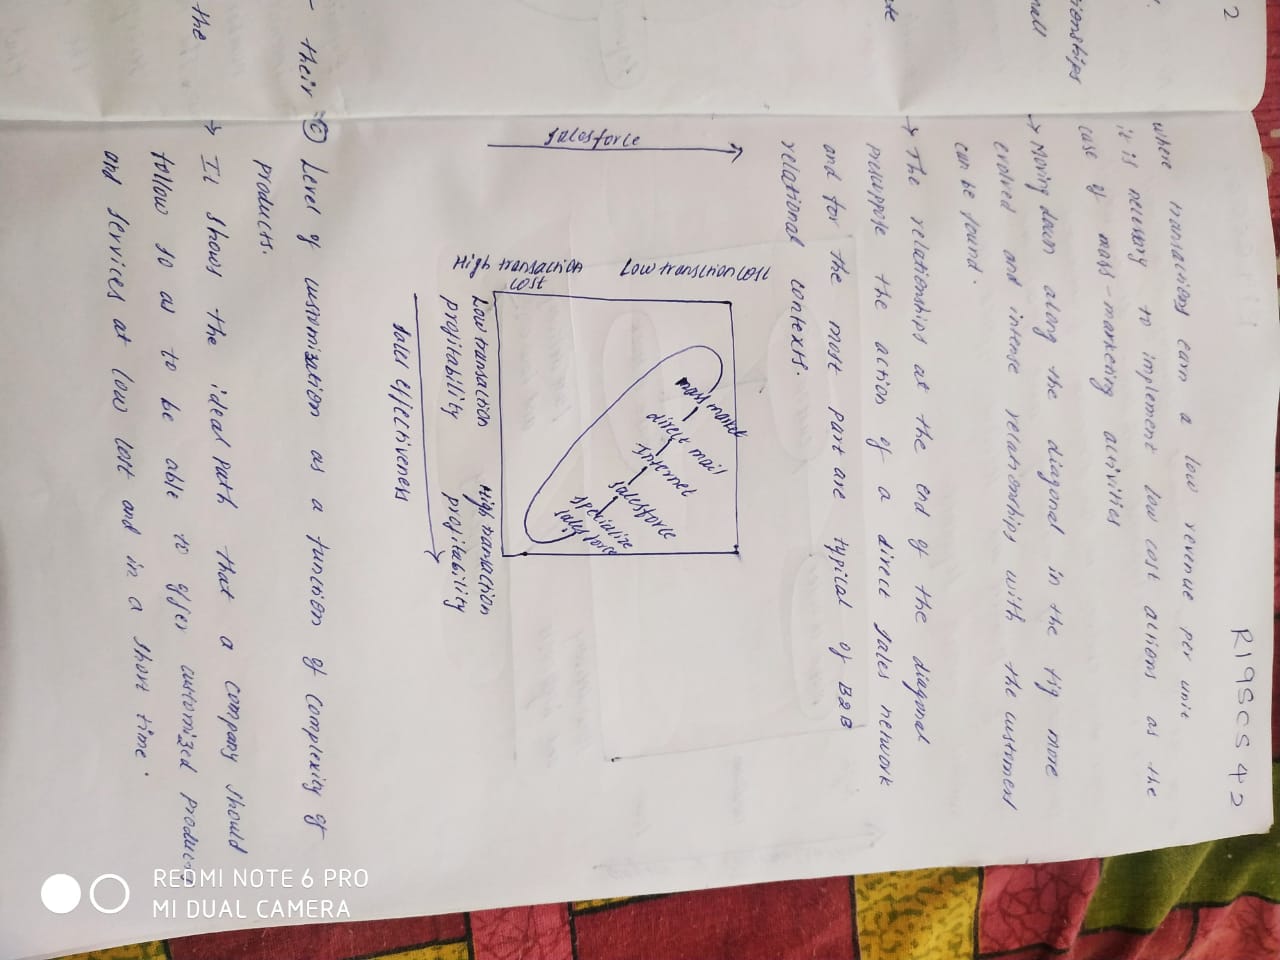 2
ionships
the
their
R19SCS42
where transactions earn a low revenue per unit
it is necessary to implement low cost actions as the
case of mass-marketing activities
→ Moving down along the diagonal in the fig more
evolved and intense relationships with the
can be found.
→ The relationships at the end of the diagonal
presuppose the action of a direct sales network
and for the most part are typical of B2B
relational contexts.
Salesforce
Low transction cost
High transaction
cost
mass market
direct mail
Internet
salesforce
specialize
sales force
Low transaction High transaction
profitability profitability
Sales effectiveness
Level of customization as a function of complexity of
products.
→ It shows the ideal path that a company should
follow so as to be able to offer customized products
and services at low cost and in a short time.
REDMI NOTE 6 PRO
MI DUAL CAMERA